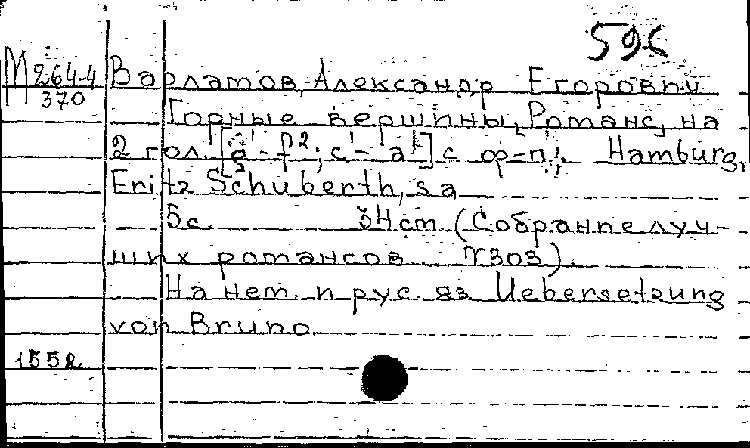 596
М 264-4
370
Варламов, Александр Егорович
Горные вершины, Романс, на
2 гол. [e¹-f²; c¹-a¹] с ф-п. Hamburg,
Fritz Schuberth, s.a.
5 с. 34 cm (Собрание луч-
ших романсов N303).
На нем. и рус. яз. Uebersetzung
von Bruno